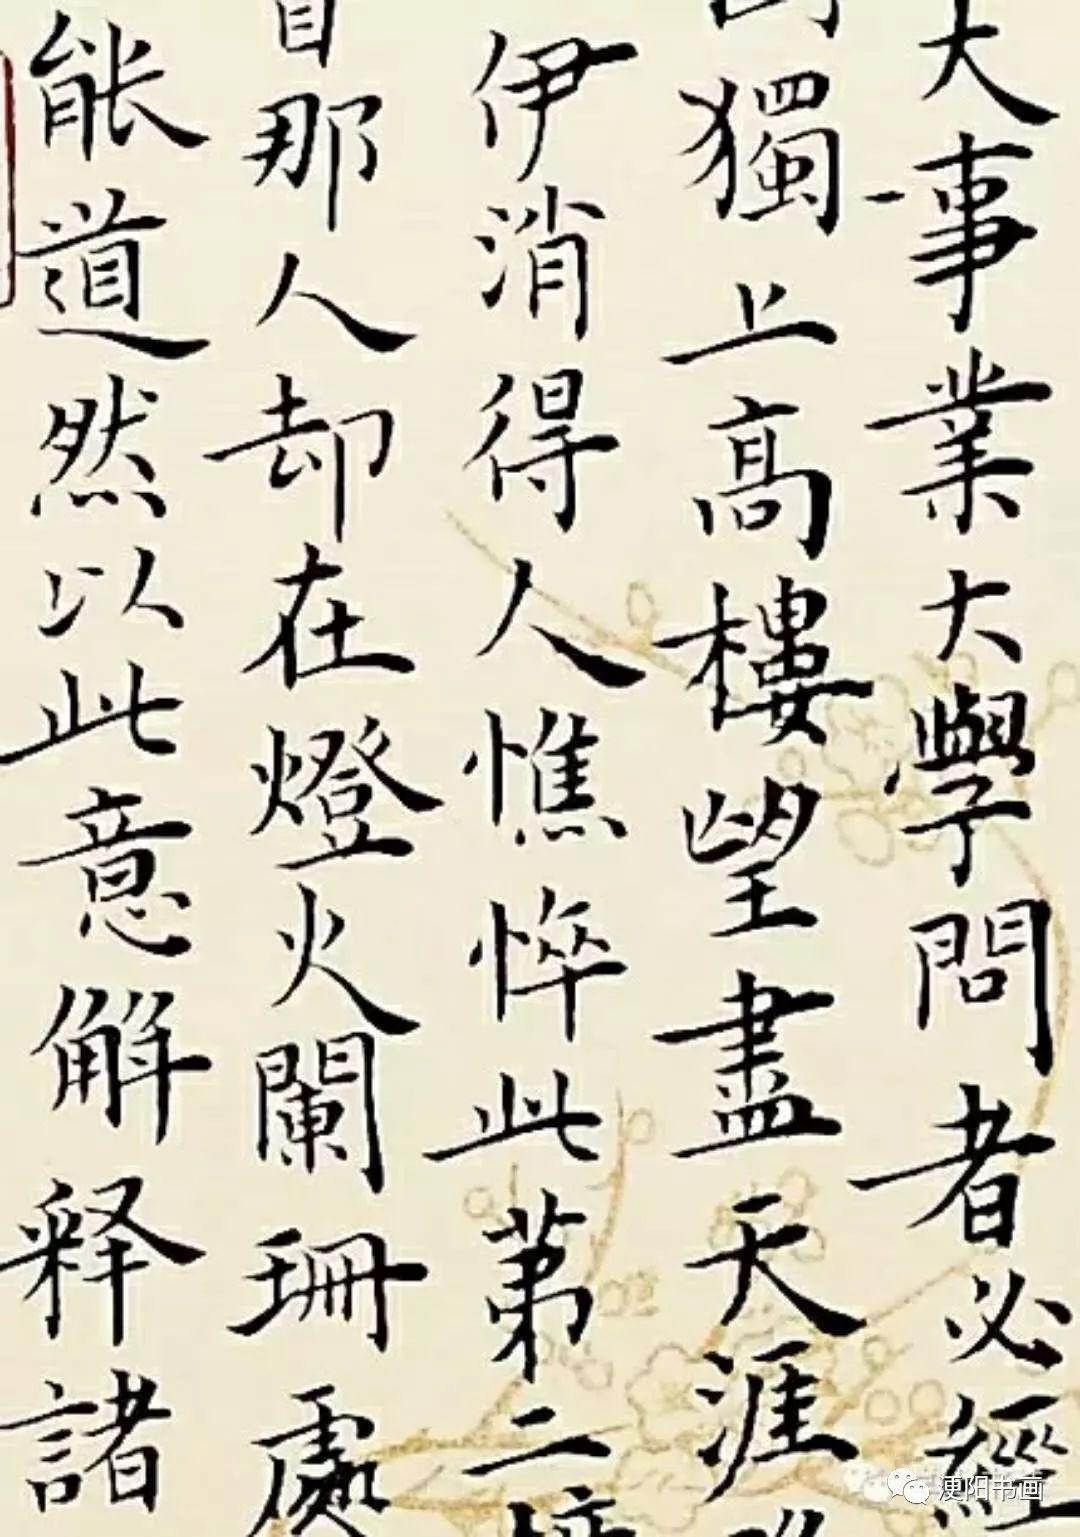 大事業大學問者必經
獨上高樓望盡天涯
伊消得人憔悴此第二境
首那人却在燈火闌珊處
能道然以此意解释諸
梗阳书画